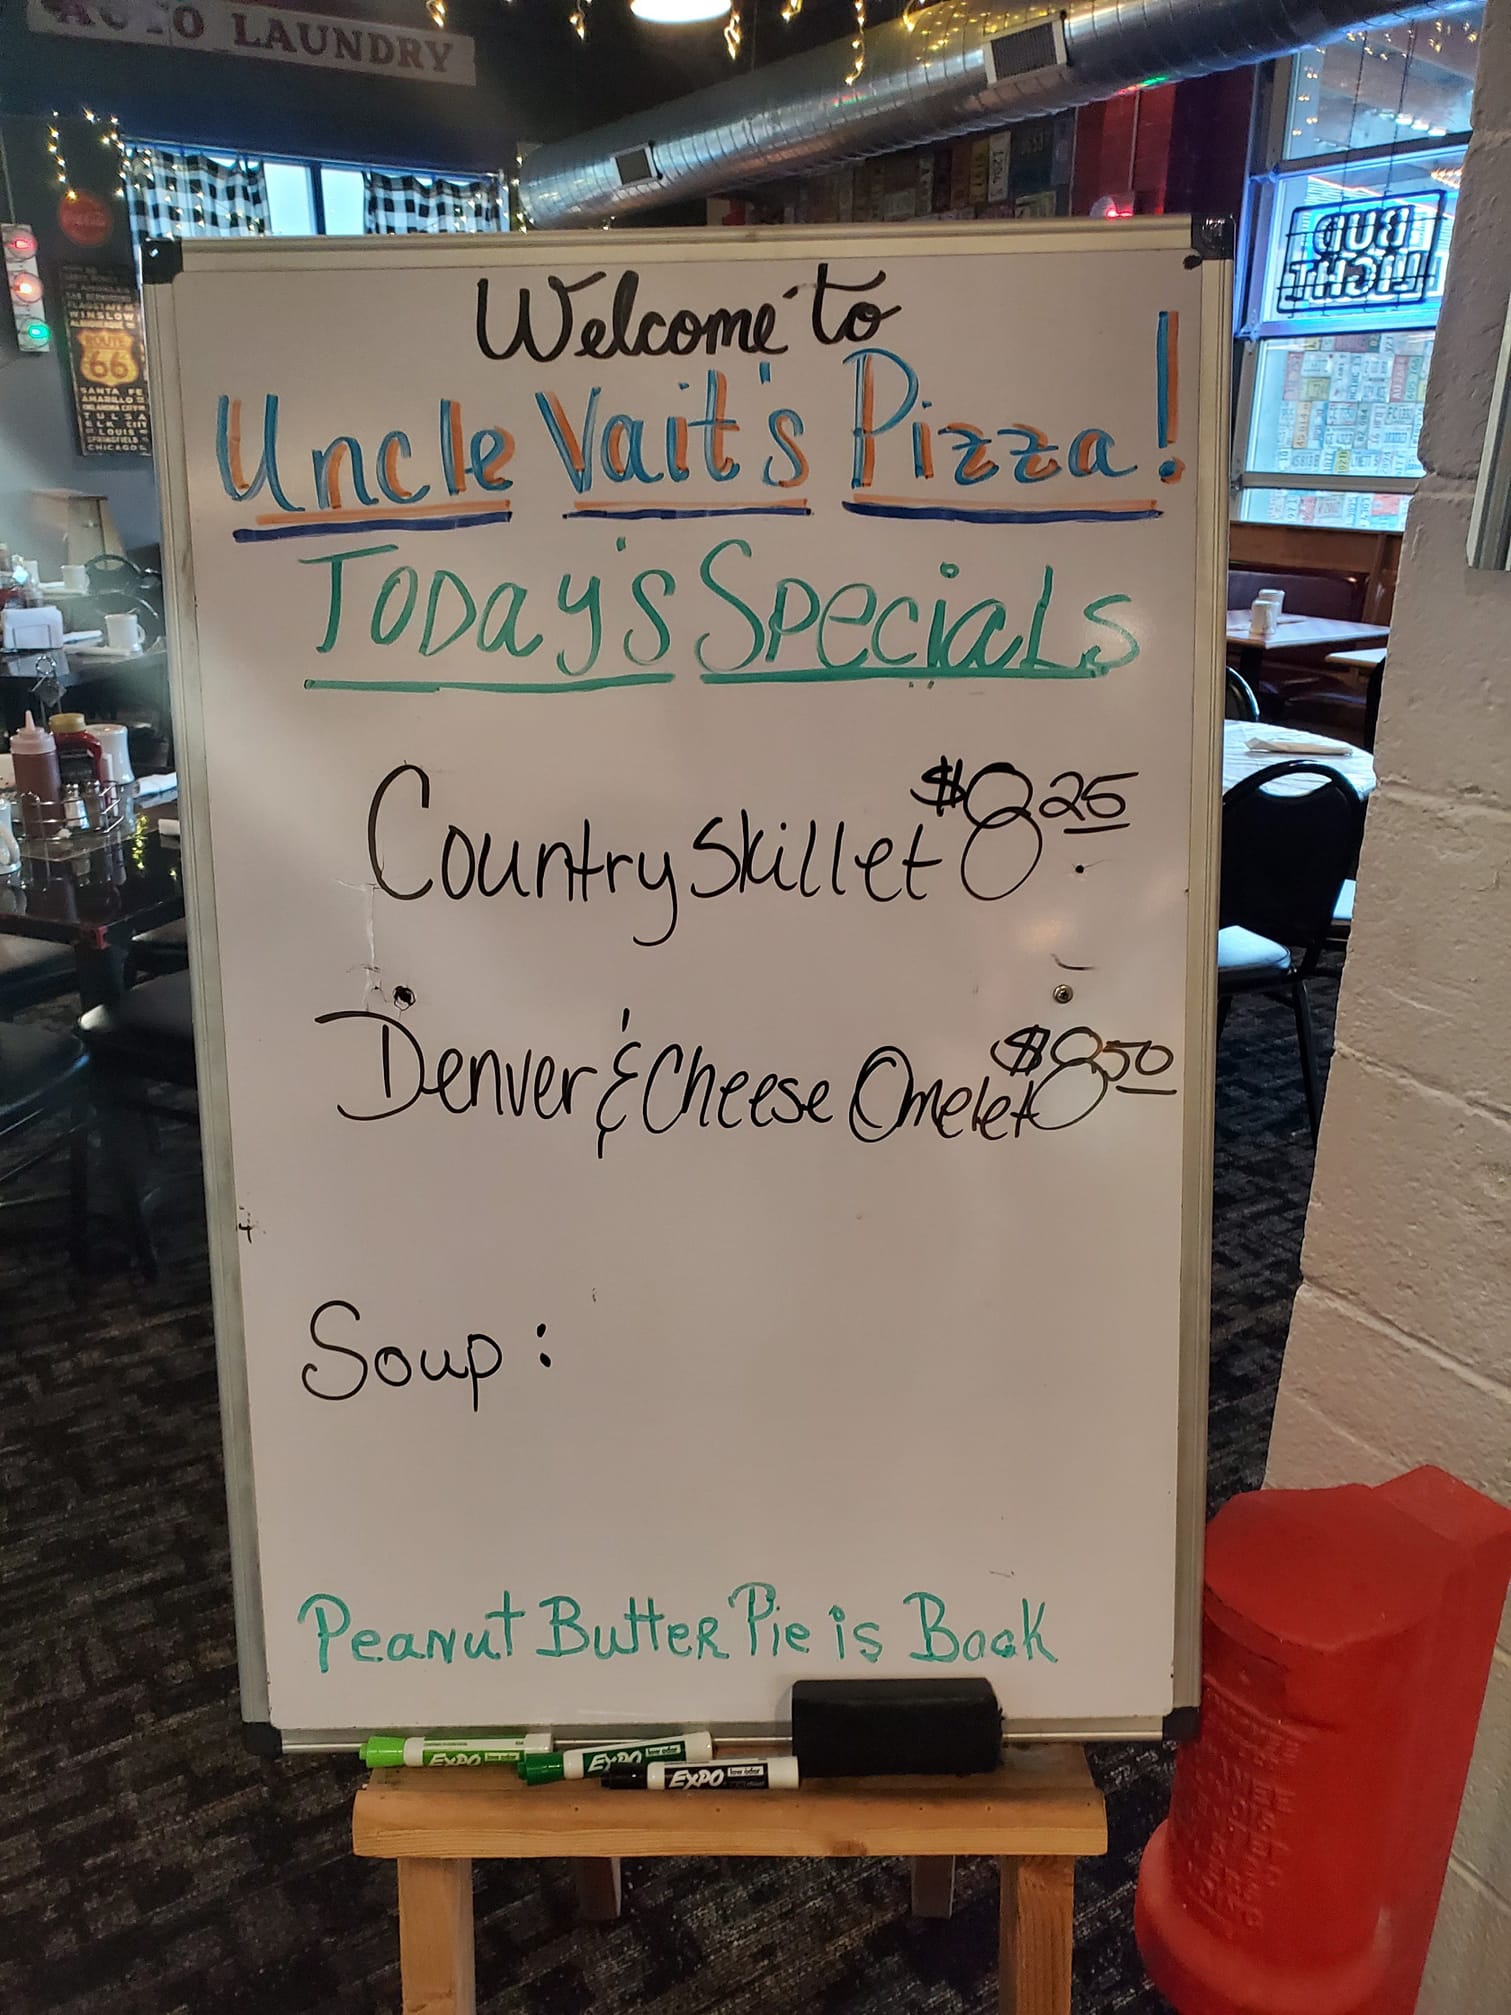 AUTO LAUNDRY
BUD
LIGHT
WINSLOW
ROUTE
66
SANTA FE
AMARILLO
OKLAHOMA CITY
TULSA
ELK CITY
ST LOUIS
SPRINGFIELD
CHICAGO
Welcome to
Uncle Vait's Pizza!
Today's Specials
Country Skillet $8.25
Denver & Cheese Omelet $8.50
Soup:
Peanut Butter Pie is Back
EXPO
EXPO low odor
EXPO low odor